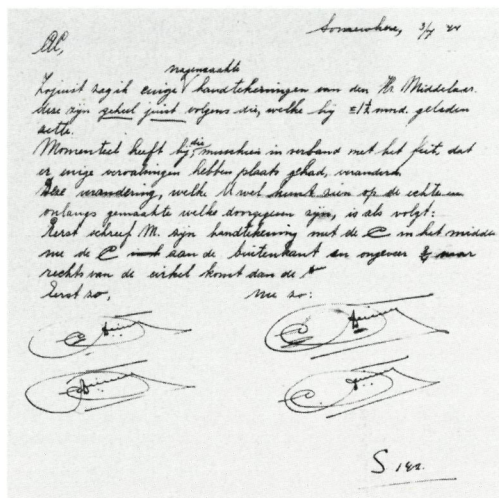 Somewhere, 3/7 44
CC,
nagemaakte
Zojuist zag ik enige handtekeningen van den Hr Middelaer.
deze zijn geheel juist volgens die, welke hij ± 1½ mnd. geleden
zette.
Momenteel heeft hij die, misschien in verband met het feit, dat
er enige vervalsingen hebben plaats gehad, veranderd.
Deze verandering, welke U wel kunt zien op de echte en
onlangs gemaakte welke doorgegeven zijn, is als volgt:
Eerst schreef M. zijn handtekening met de C in het midden
nu de C aan de buitenkant en ongeveer naar
rechts van de cirkel komt dan de
Eerst zo, nu zo:
S 142.